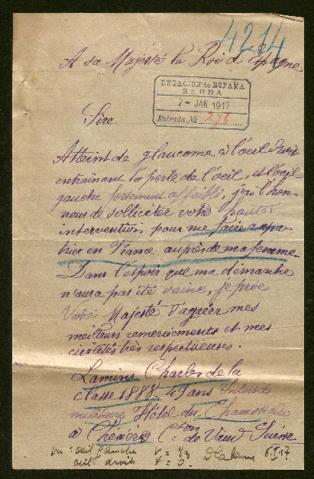 4214
A sa Majesté le Roi d'Espagne
LEGACION DE ESPAÑA
BERNA
7- JAN 1917
Entrada, Nº 276
Sire
Atteint de glaucome à l'oeil droit
entraînant la perte de l'oeil, et l'oeil
gauche fortement affaibli, j'ai l'hon-
neur de solliciter votre haute
intervention, pour me faire rapa-
trier en France auprès de ma femme.
Dans l'espoir que ma démarche
n'aura pas été vaine, je prie
Votre Majesté d'agréer mes
meilleurs remerciements et mes
civilités très respectueuses.
Lamine Charles de la
classe 1888 49 ans
militaire Hôtel du Chamossaire
à Chesières Cton de Vaud Suisse
vu: oeil gauche V =
oeil droit V = 0.